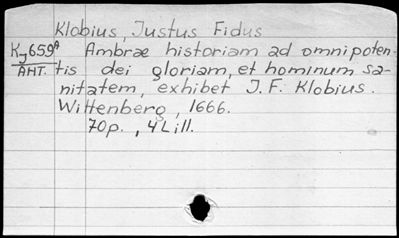 Klobius, Justus Fidus
Ky659A Ambræ historiam ad omnipoten-
AHT. tis dei gloriam, et hominum sa-
nitatem, exhibet J. F. Klobius.
Wittenberg, 1666.
70p., 4 Lill.